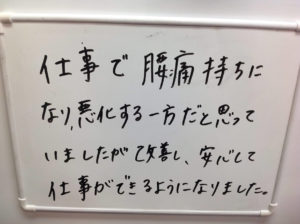 仕事で腰痛持ちに
なり,悪化する一方だと思って
いましたが改善し、安心して
仕事ができるようになりました。